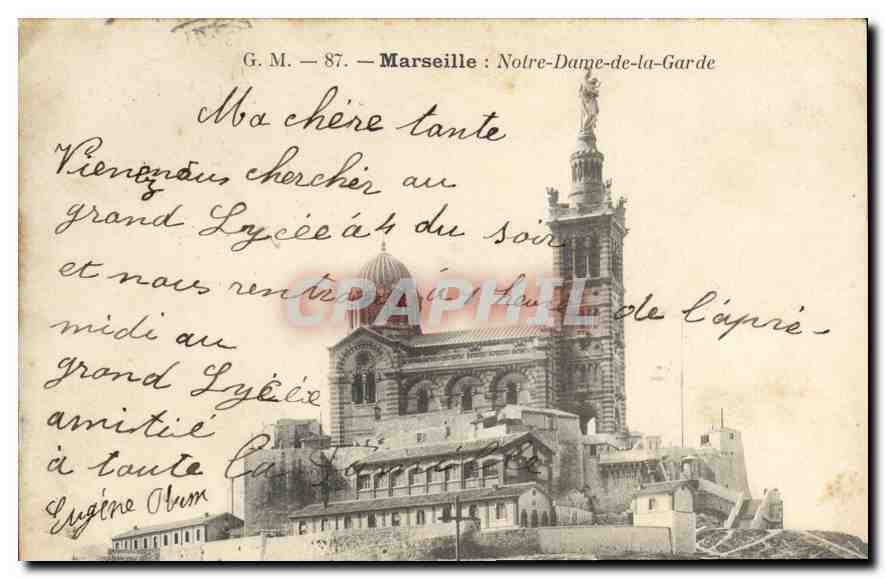 G. M. — 87. — Marseille : Notre-Dame-de-la-Garde
Ma chère tante
Venez nous chercher au
grand Lycée à 4 du soir
et nous rentrons à 1 heure de l'aprè-
midi au
grand Lycée
amitié
à toute la famille
Eugène
CPAPHIL